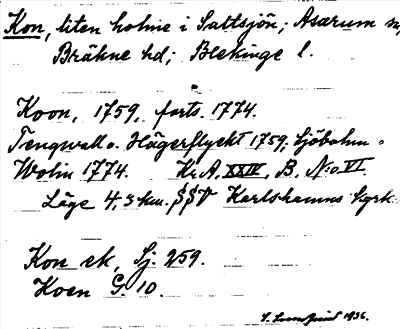 Kon, liten holme i Saltsjön; Asarum sn,
Bräkne hd; Blekinge l.
Koon, 1759, forts. 1774.
Tengwall o. Hägerflyckt 1759; Sjöbohm o
Wolin 1774. Kr. A. XXIV, B. N:o VI.
Läge 4,3 km. SSV Karlshamns kyrk.
Kon ek, Sj. 259.
Koen G. 10.
1936.